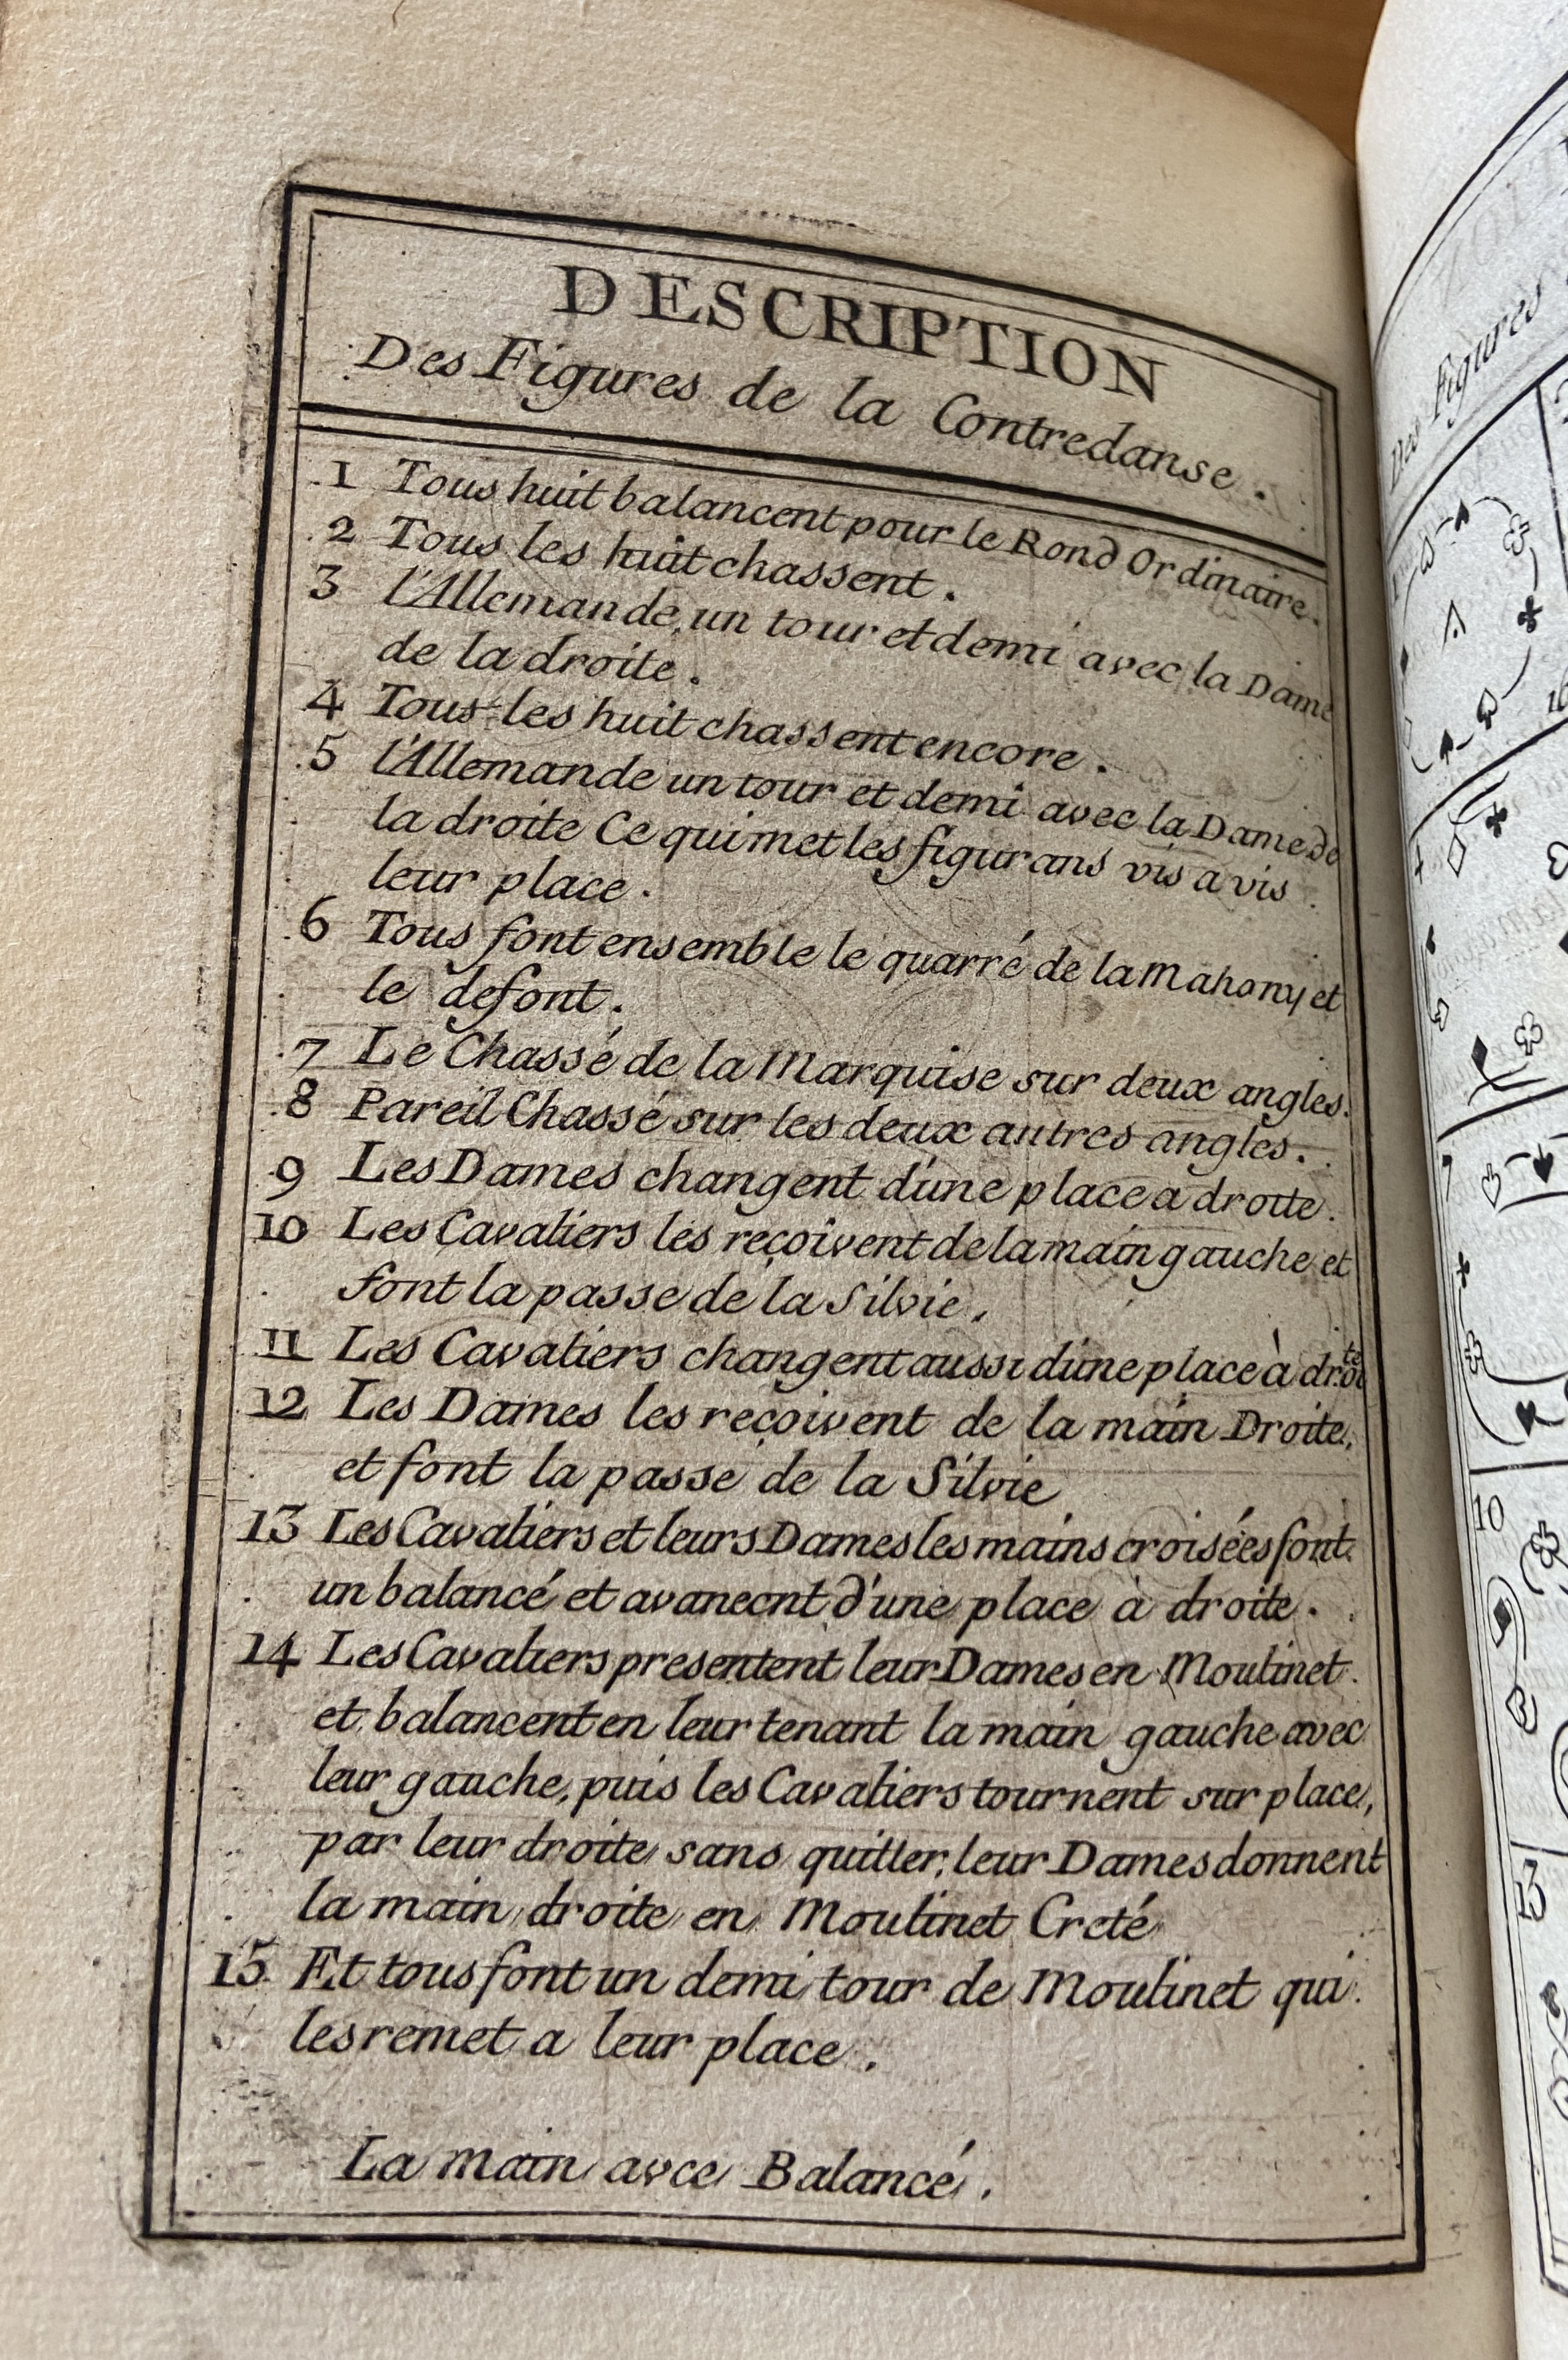 DESCRIPTION
Des Figures de la Contredanse.
1 Tous huit balancent pour le Rond Ordinaire.
2 Tous les huit chassent.
3 l'Allemande, un tour et demi avec la Dame
de la droite.
4 Tous les huit chassent encore.
5 l'Allemande un tour et demi avec la Dame de
la droite Ce qui met les figurans vis a vis
leur place.
6 Tous font ensemble le quarré de la Mahony et
le defont.
7 Le Chassé de la Marquise sur deux angles.
8 Pareil Chassé sur les deux autres angles.
9 Les Dames changent d'une place a droite.
10 Les Cavaliers les reçoivent de la main gauche et
font la passe de la Silvie.
11 Les Cavaliers changent aussi d'une place à droite
12 Les Dames les reçoivent de la main Droite,
et font la passe de la Silvie
13 Les Cavaliers et leurs Dames les mains croisées font
un balancé et avanecnt d'une place à droite.
14 Les Cavaliers presentent leur Dames en Moulinet
et balancent en leur tenant la main gauche avec
leur gauche, puis les Cavaliers tournent sur place,
par leur droite sans quitter, leur Dames donnent
la main droite en Moulinet Creté
15 Et tous font un demi tour de Moulinet qui
les remet a leur place.
La main avce Balancé.
Des Figures
7
10
13